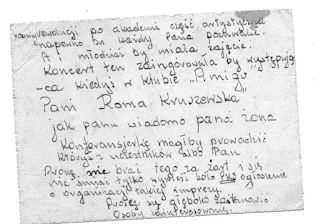 po akademi część artystyczna
napewno by każdy Pana podziwiał.
A i młodzież by miała zajęcie.
Koncert ten zaingórowała by występują
-ca kiedyś w klubie "Amigo"
Pani Roma Kruszewska
jak panu wiadomo pana żona
Konferansjerkę mogłiby prowadzić
któryś z uczestników albo Pan
Proszę, nie brać tego za żart i się
nie śmiać tylko wywiesić koło ogłoszenie
o organizacji takiej imprezy.
Proszę się głęboko zastanowić
Osoby zainteresowane